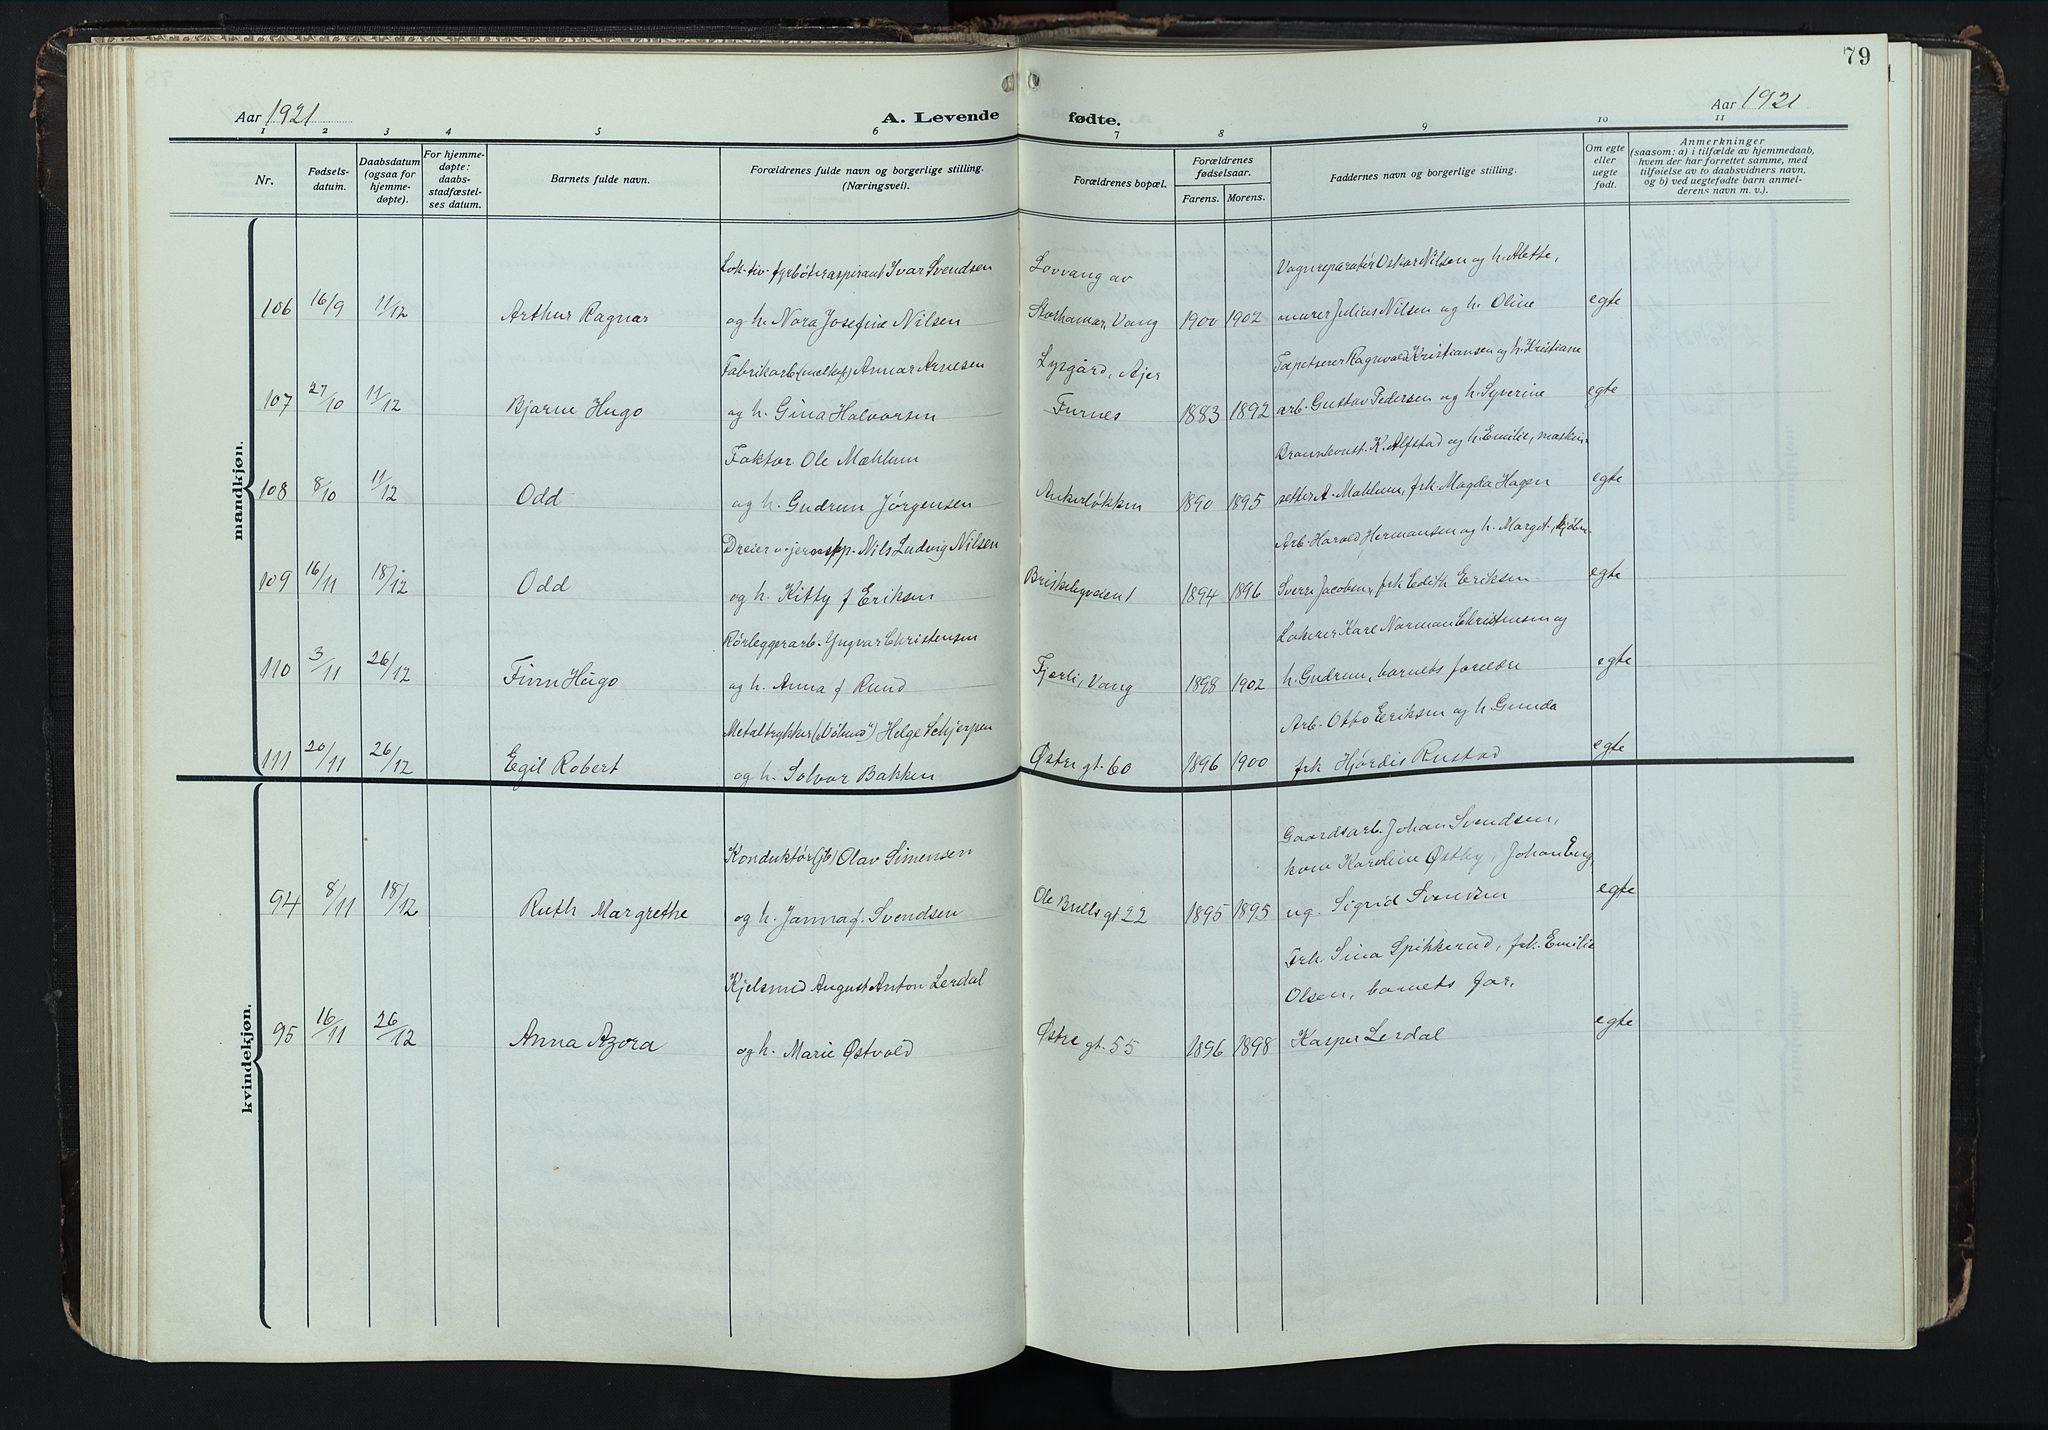 79
Aar 1921
A. Levende fødte.
Aar 1921
1 2 3 4 5 6 7 8 9 10 11
Nr.
Fødsels-
datum.
Daabsdatum
(ogsaa for
hjemme-
døpte).
For hjemme-
døpte:
daabs-
stadfæstel-
ses datum.
Barnets fulde navn.
Forældrenes fulde navn og borgerlige stilling.
(Næringsvei).
Forældrenes bopæl.
Forældrenes
fødselsaar.
Farens. Morens.
Faddernes navn og borgerlige stilling.
Om egte
eller
uegte
født.
Anmerkninger
(saasom: a) i tilfælde av hjemmedaab,
hvem der har forrettet samme, med
tilføielse av to daabsvidners navn,
og b) ved uegtefødte barn anmel-
derens navn m. v.).
mandkjøn.
Lok-tiv-fyrbøteraspirant Ivar Svendsen Lovvang av Vognreparatør Oskar Nilsen og h. Alette,
106 16/9 11/12 Arthur Ragnar og h. Nora Josefine Nilsen Storhamar, Vang 1900 1902 murer Julius Nilsen og h. Oline egte
Fabrikarb. (melkef) Annar Arnesen Lysgård, Ajer Tapetserer Ragnvald Kristiansen og h. Kristiane
107 27/10 11/12 Bjarne Hugo og h. Gina Halvorsen Furnes 1883 1892 arb. Gustav Pedersen og h. Syverine egte
Faktor Ole Mæhlum Brannkonst. K. Alfstad og h. Emilie, maskin-
108 8/10 11/12 Odd og h. Gudrun Jørgensen Ankerløkken 1890 1895 setter A. Mæhlum, frk. Magda Hagen egte
Dreier v. jernstøp. Nils Ludvig Nilsen Arb. Harald Hermansen og h. Margit,
109 16/11 18/12 Odd og h. Kitty f Eriksen Briskebyveien 1 1894 1896 Sverre Jacobsen, frk Edith Eriksen egte
Rørleggerarb. Yngvar Christensen Lakerer Karl Norman Christensen og
110 3/11 26/12 Finn Hugo og h. Anna f Rund Fjærli, Vang 1898 1902 h. Gudrun, barnets foreldre egte
Metaltrykker Helge Schjerpen Arb. Otto Eriksen og h Gunda
111 20/11 26/12 Egil Robert og h. Solvor Bakken Østre gt. 60 1896 1900 frk Hjørdis Rustad egte
kvindekjøn.
Gaardsarb. Johan Svendsen,
Konduktør (jb) Olav Simensen kone Karoline Østby, Johan Eng,
94 8/11 18/12 Ruth Margrethe og h. Janna f. Svendsen Ole Bulls gt 22 1895 1895 ug. Sigrid Svensen egte
Frk. Sina Spikkerud, frk. Emilie
Kjelsmed August Anton Lerdal Olsen, barnets far,
95 16/11 26/12 Anna Azora og h. Marie Østvold Østre gt. 55 1896 1898 Kasper Lerdal egte